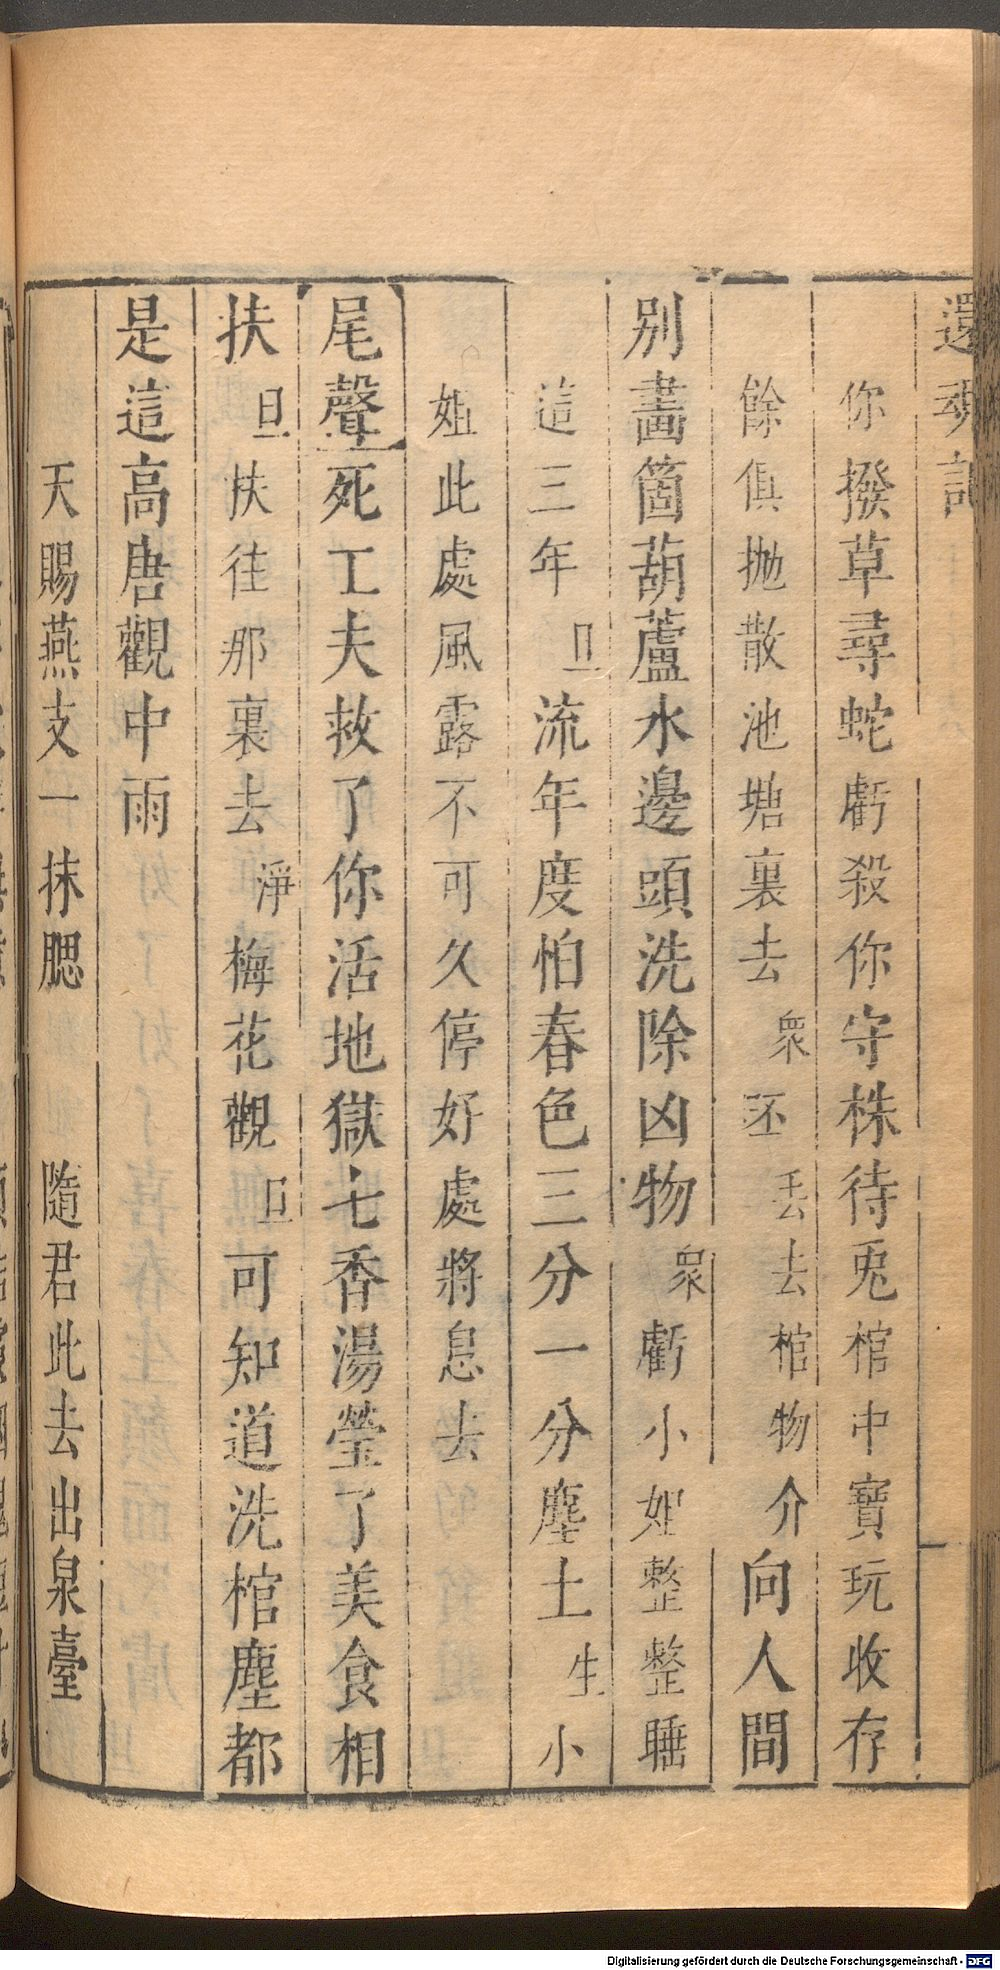 還魂記
你撥草尋蛇虧殺你守株待兎棺中寶玩收存
餘俱抛散池塘裏去衆丕丟去棺物介向人間
别畫箇葫蘆水邊頭洗除凶物衆虧小姐整整睡
這三年旦流年度怕春色三分一分塵土生小
姐此處風露不可久停好處將息去
尾聲死工夫救了你活地獄七香湯瑩了美食相
扶旦扶往那裏去淨梅花觀旦可知道洗棺塵都
是這高唐觀中雨
天賜燕支一抹腮 隨君此去出泉臺
Digitalisierung gefördert durch die Deutsche Forschungsgemeinschaft - DFG